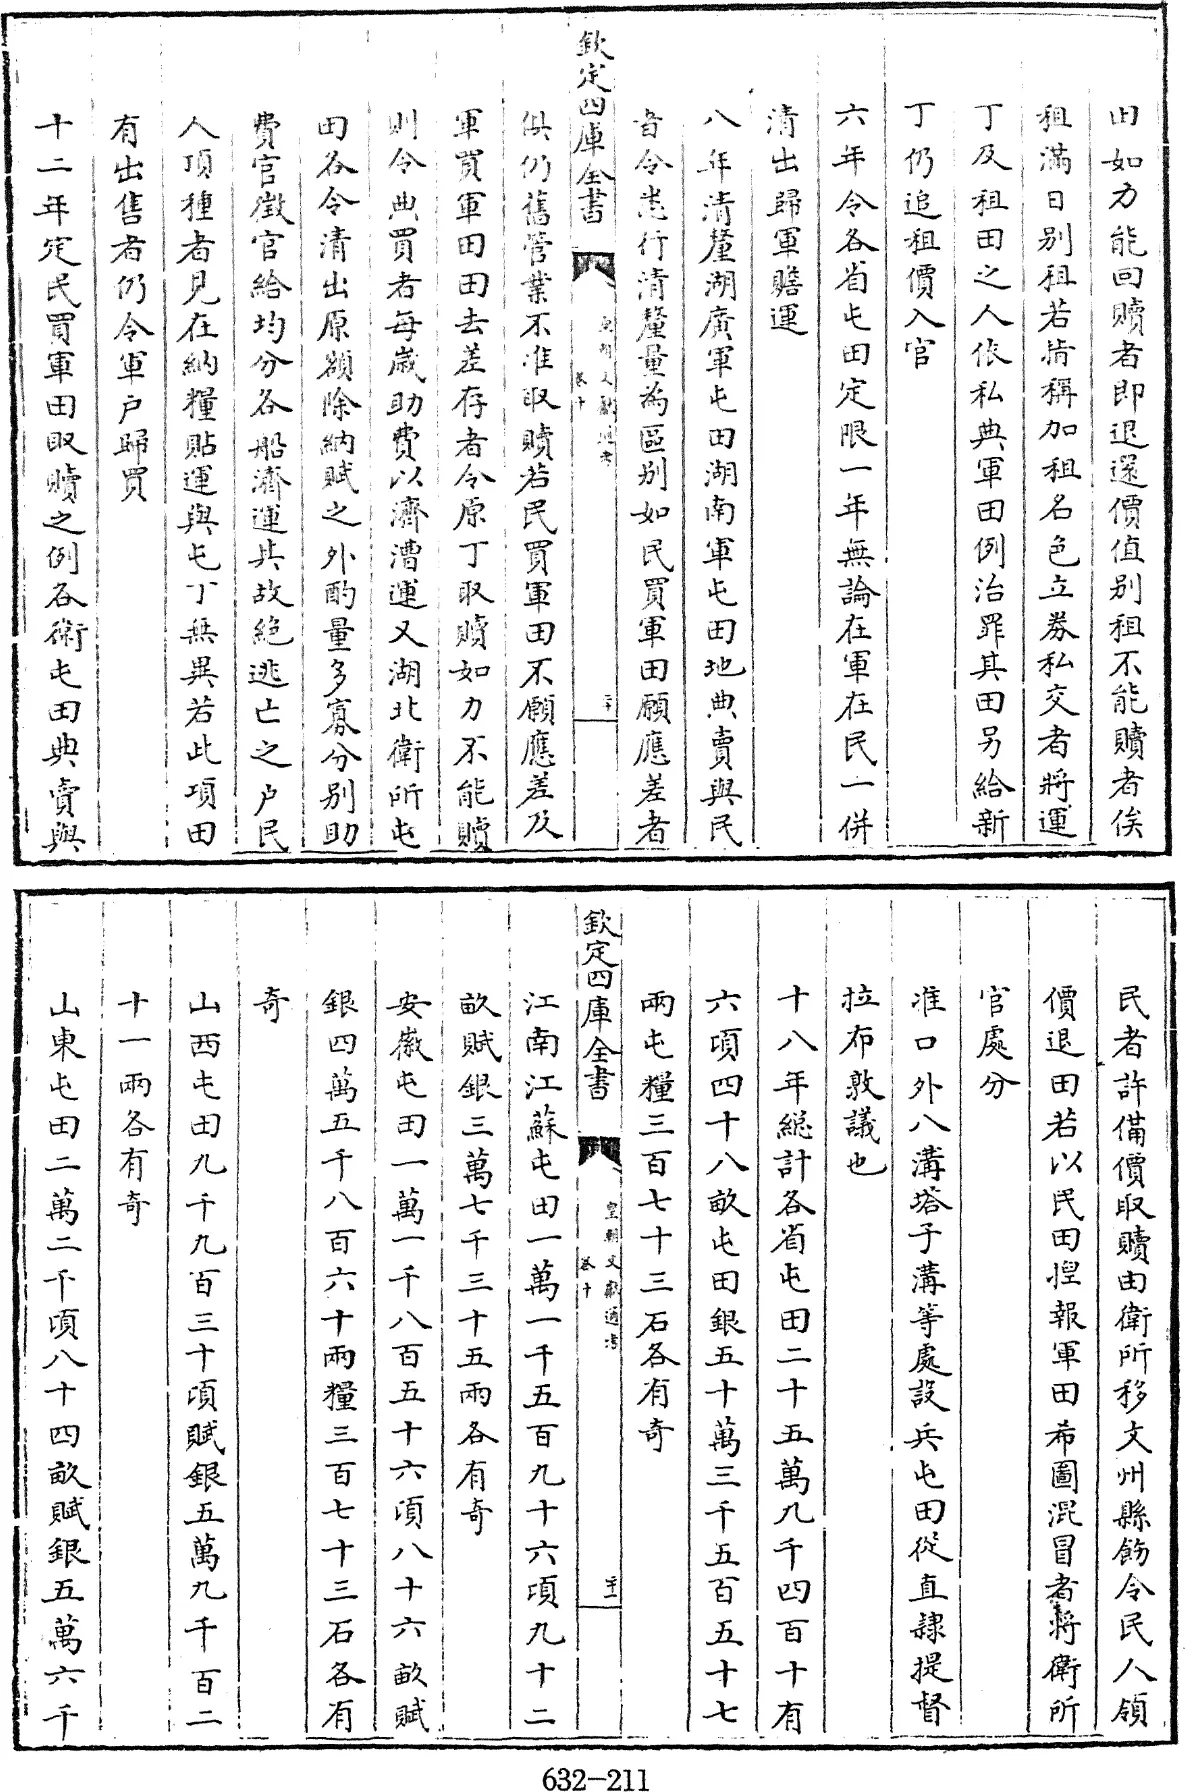 田如力能回贖者即退還價值別租不能贖者俟
租滿日別租若指稱加租名色立券私交者將運
丁及租田之人依私典軍田例治罪其田另給新
丁仍追租價入官
六年令各省屯田定限一年無論在軍在民一併
清出歸軍贍運
八年清釐湖廣軍屯田湖南軍屯田地典賣與民
者令悉行清釐量為區別如民買軍田願應差者
欽定四庫全書
皇朝文獻通考
卷十
二十
俱仍舊管業不准取贖若民買軍田不願應差及
軍買軍田田去差存者令原丁取贖如力不能贖
則令典買者每歲助費以濟漕運又湖北衛所屯
田各令清出原額除納賦之外酌量多寡分別助
費官徵官給均分各船濟運其故絕逃亡之户民
人頂種者見在納糧貼運與屯丁無異若此項田
有出售者仍令軍户歸買
十二年定民買軍田取贖之例各衛屯田典賣與
民者許備價取贖由衛所移文州縣飭令民人領
價退田若以民田捏報軍田希圖混冒者將衛所
官處分
准口外八溝塔子溝等處設兵屯田從直隸提督
拉布敦議也
十八年總計各省屯田二十五萬九千四百十有
六頃四十八畝屯田銀五十萬三千五百五十七
兩屯糧三百七十三石各有奇
欽定四庫全書
皇朝文獻通考
卷十
二十一
江南江蘇屯田一萬一千五百九十六頃九十二
畝賦銀三萬七千三十五兩各有奇
安徽屯田一萬一千八百五十六頃八十六畝賦
銀四萬五千八百六十兩糧三百七十三石各有
奇
山西屯田九千九百三十頃賦銀五萬九千百二
十一兩各有奇
山東屯田二萬二千頃八十四畝賦銀五萬六千
632-211